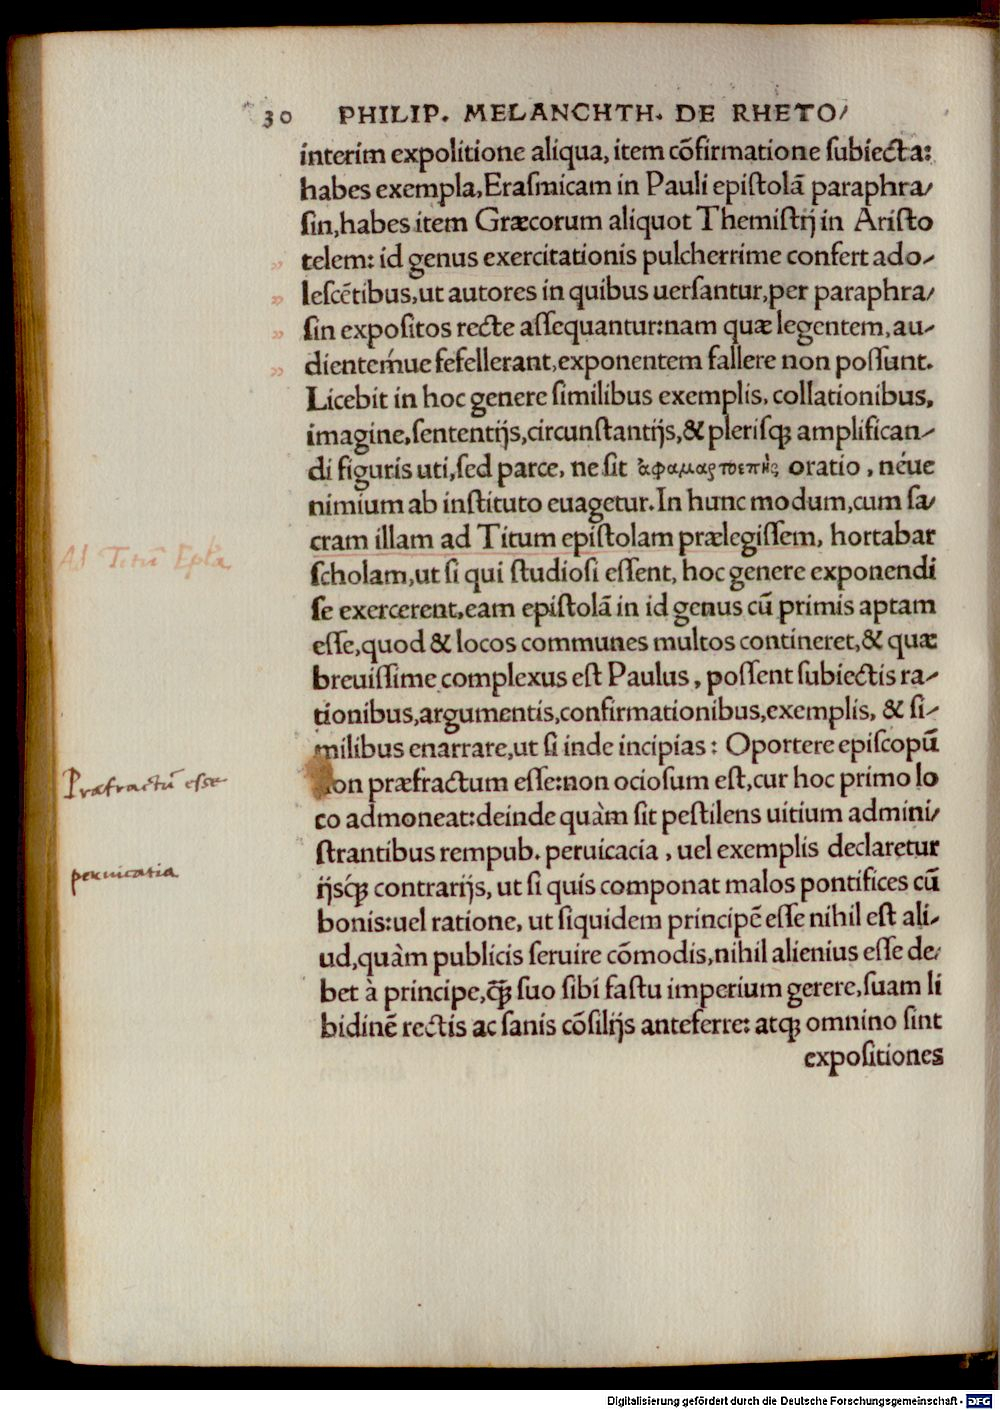 30 PHILIP. MELANCHTH. DE RHETO/
interim expolitione aliqua, item cõfirmatione ſubiecta:
habes exempla, Eraſmicam in Pauli epiſtolã paraphra/
ſin, habes item Græcorum aliquot Themiſtij in Ariſto
telem: id genus exercitationis pulcherrime confert ado-
leſcẽtibus, ut autores in quibus uerſantur, per paraphra/
ſin expoſitos recte aſſequantur: nam quæ legentem, au-
dientem´ue fefellerant, exponentem fallere non poſſunt.
Licebit in hoc genere ſimilibus exemplis, collationibus,
imagine, ſententijs, circunſtantijs, & pleriſqꝫ amplifican-
di figuris uti, ſed parce, ne ſit ἀφαμαρτοεπὴς oratio, néue
nimium ab inſtituto euagetur. In hunc modum, cum ſa/
cram illam ad Titum epiſtolam prælegiſſem, hortabar
Ad Titũ Epła
ſcholam, ut ſi qui ſtudioſi eſſent, hoc genere exponendi
ſe exercerent, eam epiſtolã in id genus cũ primis aptam
eſſe, quod & locos communes multos contineret, & quæ
breuiſſime complexus eſt Paulus, poſſent ſubiectis ra-
tionibus, argumentis, confirmationibus, exemplis, & ſi-
milibus enarrare, ut ſi inde incipias: Oportere epiſcopũ
Præfractũ eſſe
non præfractum eſſe: non ocioſum eſt, cur hoc primo lo
co admoneat: deinde quàm ſit peſtilens uitium admini/
ſtrantibus rempub. peruicacia, uel exemplis declaretur
peruicatia
ijsq́ꝫ contrarijs, ut ſi quis componat malos pontifices cũ
bonis: uel ratione, ut ſiquidem principẽ eſſe nihil eſt ali-
ud, quàm publicis ſeruire cõmodis, nihil alienius eſſe de/
bet à principe, q̃ꝫ ſuo ſibi faſtu imperium gerere, ſuam li
bidinẽ rectis ac ſanis cõſilijs anteferre: atqꝫ omnino ſint
expoſitiones
Digitalisierung gefördert durch die Deutsche Forschungsgemeinschaft - DFG